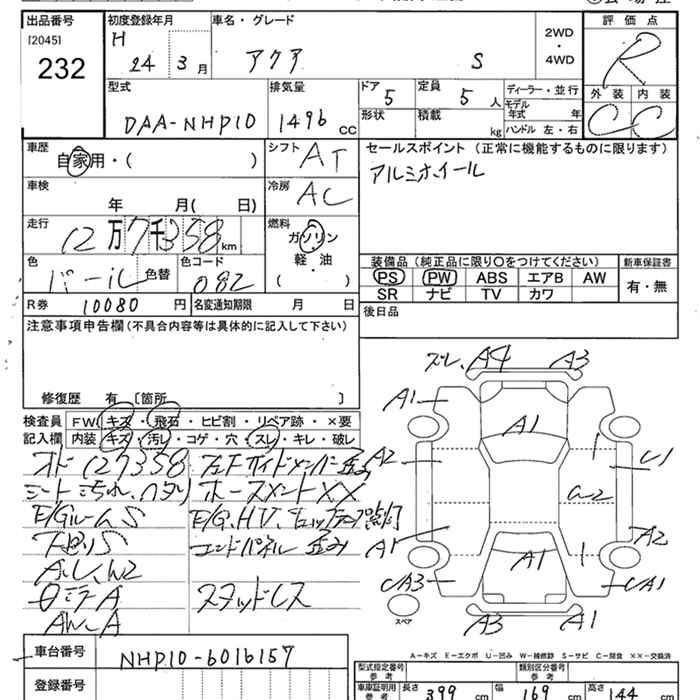 出品番号 初度登録年月 車名・グレード 評価点
[2045] H 24 3月 アクア S 2WD・4WD R
232
外装 内装
C C
型式 排気量 ドア 定員 ディーラー・並行
DAA-NHP10 1496 cc 5 5人 モデル年式 年
形状 積載 kg ハンドル 左・右
車歴 シフト セールスポイント (正常に機能するものに限ります)
自家用・( ) AT アルミホイール
車検 冷房
年 月( 日) AC
走行 燃料
12万7千358km ガソリン
軽・油
( )
色 色替 色コード 装備品(純正品に限り○をつけてください) 新車保証書
パール 082 PS PW ABS エアB AW 有・無
SR ナビ TV カワ
R券 10080円 名変通知期限 月 日 後日品
注意事項申告欄(不具合内容等は具体的に記入して下さい)
修復歴 有 [箇所 ]
検査員 FW キズ・飛石・ヒビ割・リペア跡・×要
記入欄 内装 キズ・汚レ・コゲ・穴・スレ・キレ・破レ
オド127358
シート汚れ、ヘタリ
E/GルームS
下廻りS
A.U、W2
ミラA
AW A
コアサポート
ホースメントXX
E/G、HV、チェックランプ点灯
エンドパネル歪み
スタッドレス
ズレ、A4 A3
A1
A1
A2 C1
A1 A2
A1
CA3 CA1
スペア A3 A1
A-キズ E-エクボ U-凹み W-補修跡 S-サビ C-腐食 ××-交換済
車台番号 NHP10-6016157
登録番号
型式指定番号 参考 類別区分番号 参考
車庫証明用 参考 長さ 399 cm 幅 169 cm 高さ 144 cm